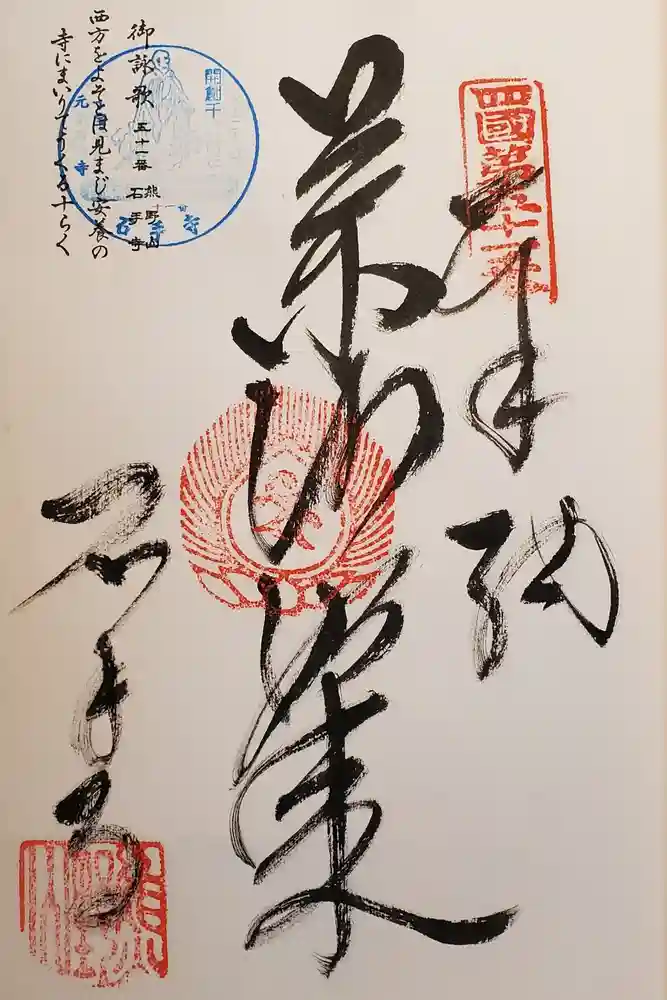 四國第五十一番
奉納
薬師如来
石手寺
御詠歌 五十一番 熊野山 石手寺
西方をよそとは見まじ安養の
寺にまいりてうくる十らく
開創千
元
寺
石手寺